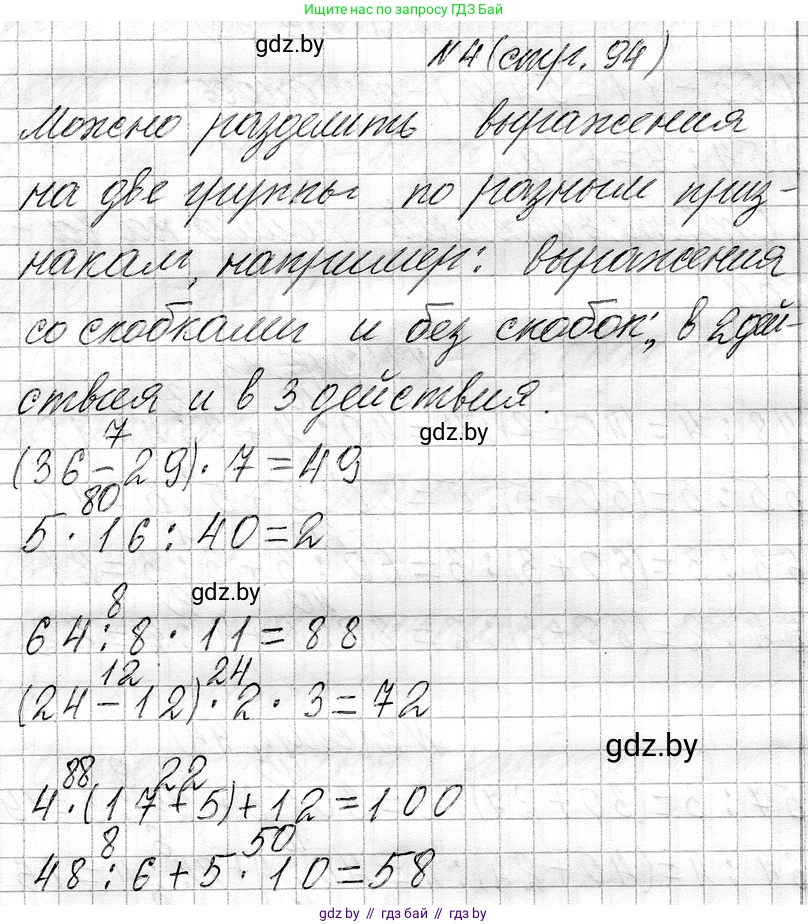 Ищите нас по запросу ГДЗ Бай
gdz.by
№4 (стр. 94)
Можно разделить выражения
на две группы по разным приз-
накам, например: выражения
со скобками и без скобок;, в 2 дей-
ствия и в 3 действия.
7
gdz.by
(36-29)·7=49
80
5·16:40=2
8
gdz.by
64:8·11=88
12 24
(24-12)·2·3=72
gdz.by
88 22
4·(17+5)+12=100
8 50
48:6+5·10=58
gdz.by // гдз бай // gdz.by